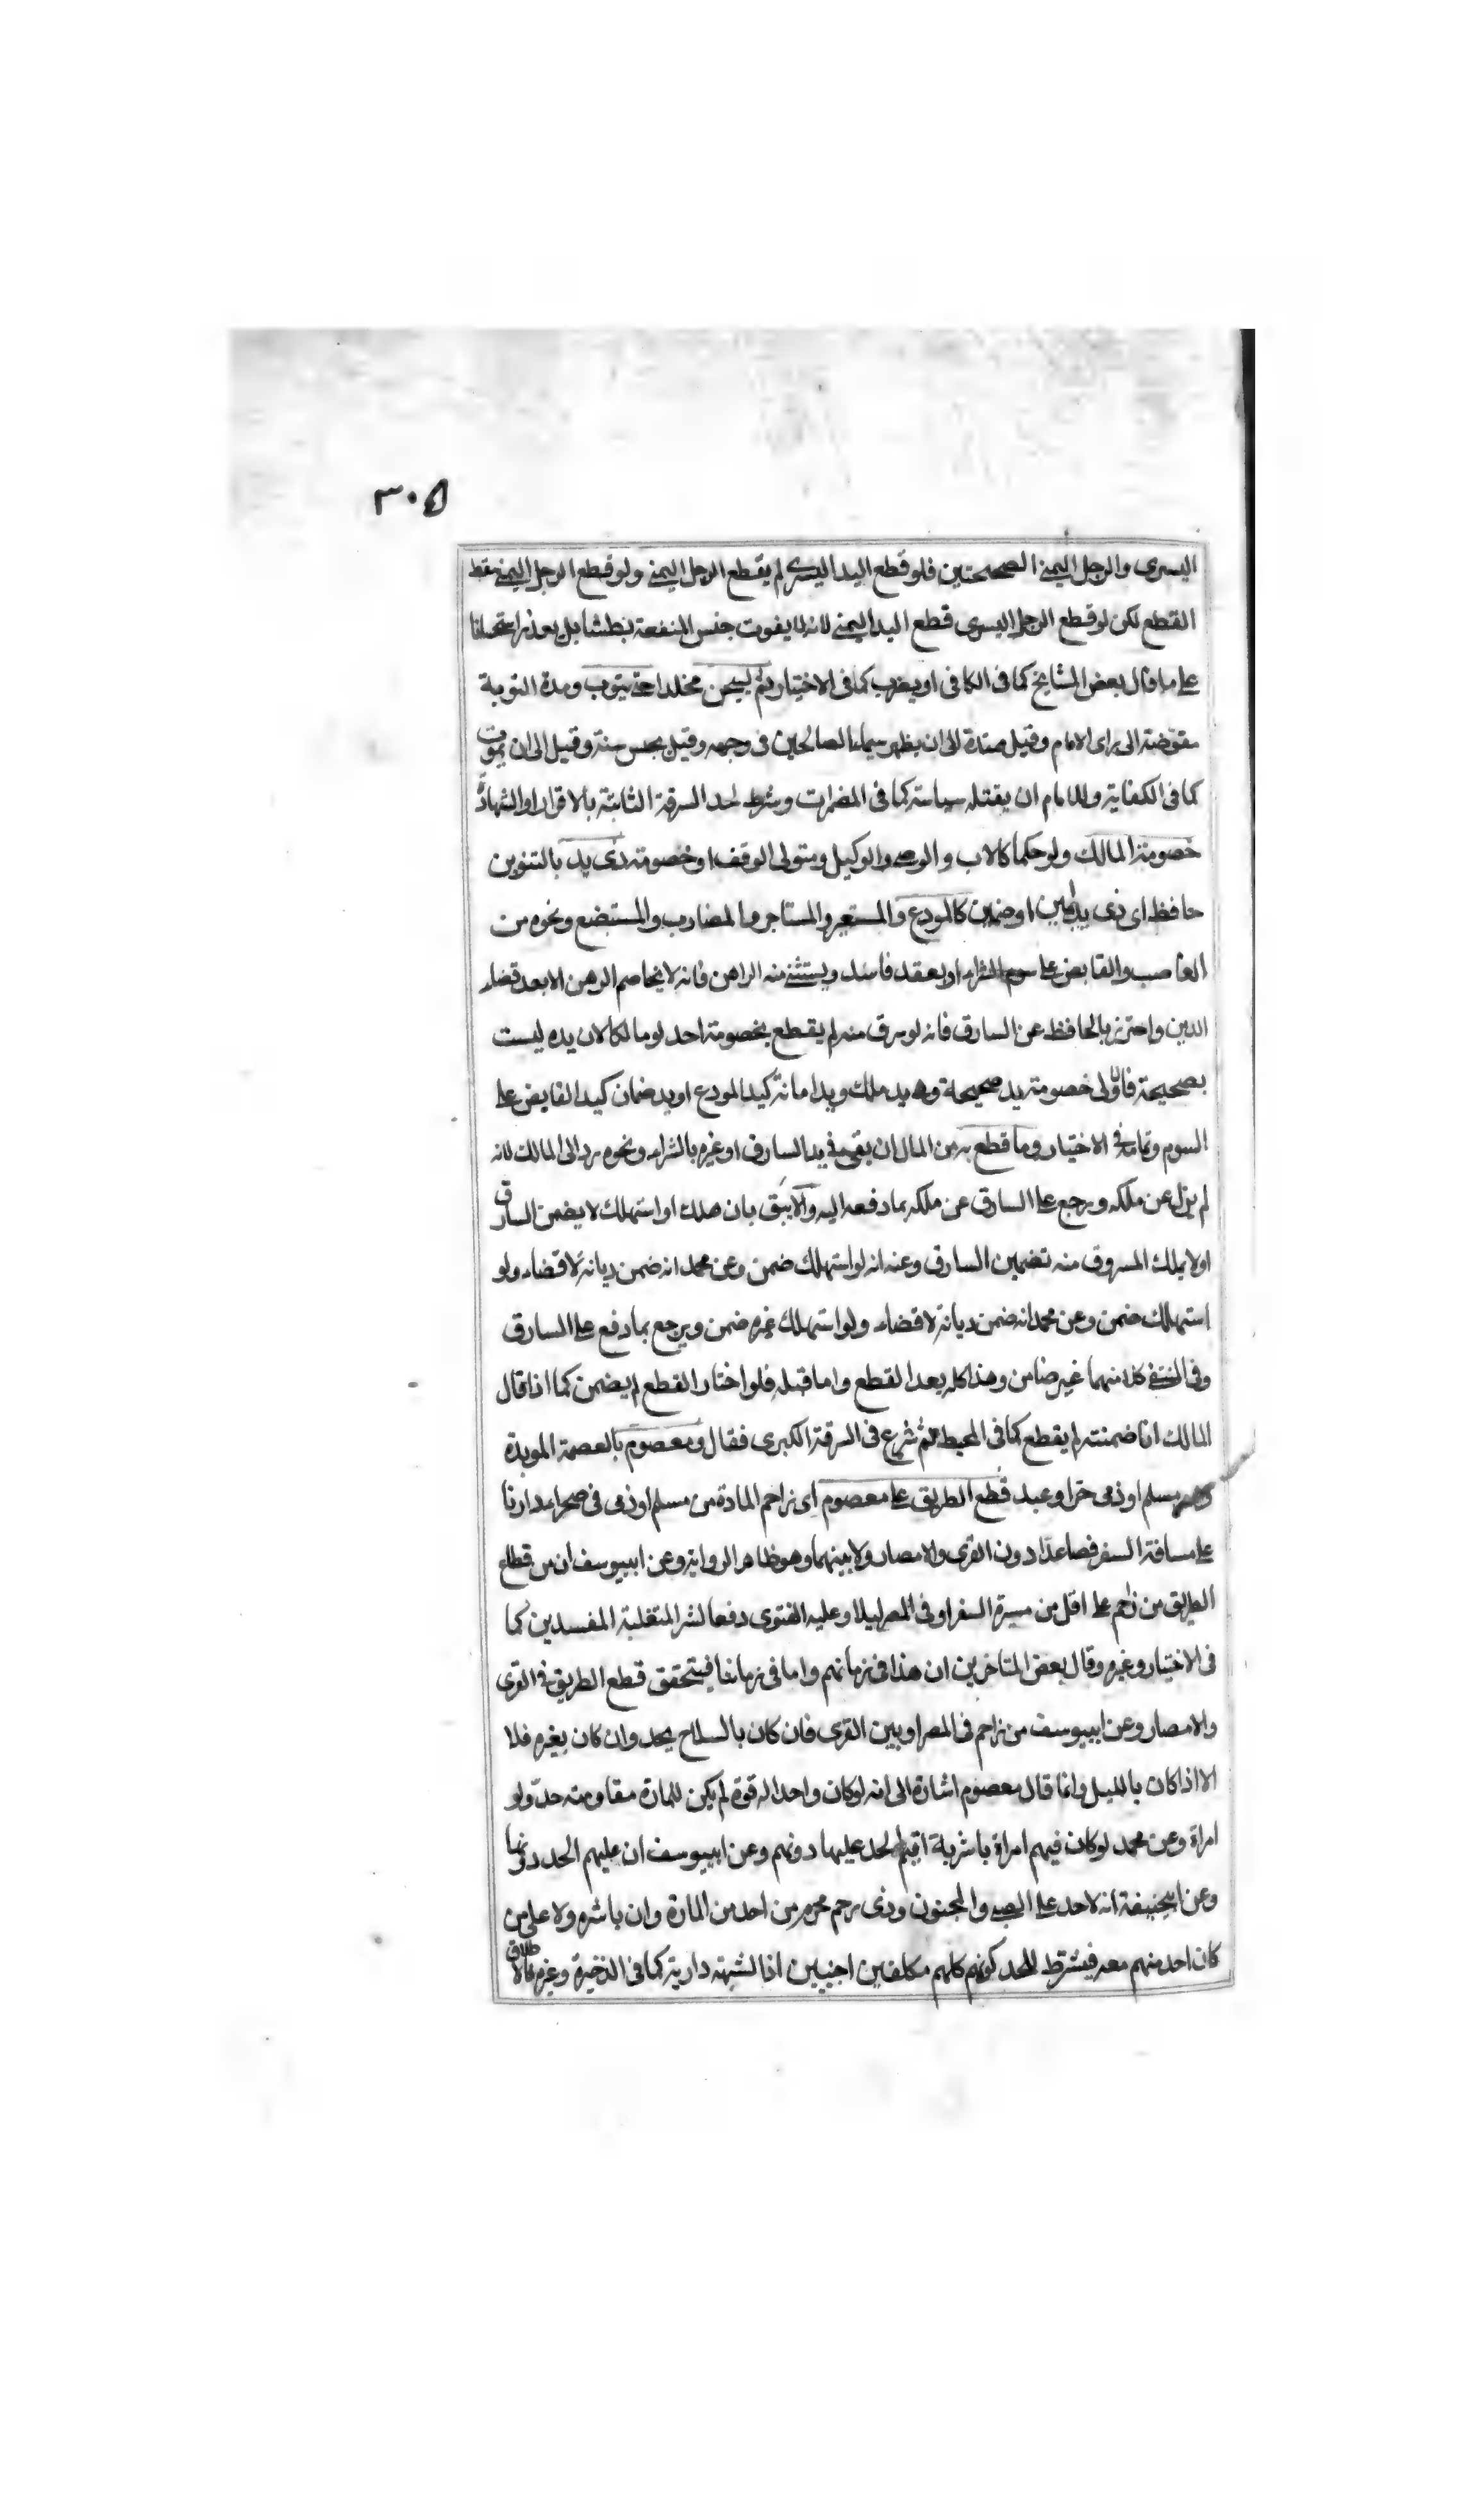 ٣٠٥
اليسرى والرجل اليمنى الصحيحتين فلو قطع اليد اليسرى لم يقطع الرجل اليمنى ولو قطع الرجل اليمنى سقط
القطع لكن لو قطع الرجل اليسرى قطع اليد اليمنى لانه لا يفوت جنس المنفعة بطشا بل بعذر
على ما قال بعض المشايخ كما فى الكافى او يضرب كما فى الاختيار ثم ليسجن مخلدا حتى يتوب ومدة التوبة
مفوضة الى راى الامام وقيل ممتدة الى ان يظهر سيماء الصالحين فى وجهه وقيل يحبس سنة وقيل الى ان يموت
كما فى الكفاية وللامام ان يقتله سياسة كما فى المضمرات وشرط لحد السرقة الثابتة بالاقرار او الشهادة
خصومة المالك ولو حكما كالاب والوصى والوكيل ومتولى الوقف او خصومة ذى يد بالتنوين
حافظ اى ذى يد امين او ضمين كالمودع والمستعير والمستاجر والمضارب والمستبضع ونحوه من
الغاصب والقابض على سوم الشراء او بعقد فاسد ويستثنى منه الراهن فانه لا يخاصم الرهن الا بعد قضاء
الدين واحترز بالحافظ عن السارق فانه لو سرق منه لم يقطع بخصومة احد لو مالكا لان يده ليست
بصحيحة فاولى خصومة يد صحيحة وهى يد ملك ويد امانة كيد المودع او يد ضمان كيد القابض على
السوم وتمامه فى الاختيار وما قطع به من المال ان بقى فى يد السارق او غيره بالشراء ونحوه رد الى المالك لانه
لم يزل عن ملكه ويرجع على السارق عن ملكه بما دفعه اليه والا يبق بان هلك او استهلك لا يضمن السارق
او لا يملك المسروق منه تضمين السارق وعنه انه لو استهلك ضمن وعن محمد انه ضمن ديانة لا قضاء ولو
استهلك ضمن وعن محمد انه ضمن ديانة لا قضاء ولو استهلك غيره ضمن ويرجع بما دفع على السارق
وفى النتفى كلا منهما غير ضامن وهذا كله بعد القطع واما قبله فلو اختار القطع لم يضمن كما اذا قال
المالك انا ضمنته لم يقطع كما فى المحيط ثم شرع فى السرقة الكبرى فقال ومعصوم بالعصمة الموبدة
مسلم او ذمى حر او عبد قطع الطريق على معصوم اى زاحم المادة من مسلم او ذمى فى صحراء دارنا
على مسافة السفر فصاعدا دون القرى والامصار ولا بينهما وهو ظاهر الرواية وعن ابييوسف ان من قطاع
الطريق من زاحم على اقل من مسيرة السفر او فى المصر ليلا وعليه الفتوى دفعا لشر المتغلبة المفسدين كما
فى الاختيار وغيره وقال بعض المتاخرين ان هذا فى زمانهم واما فى زماننا فيتحقق قطع الطريق فى القرى
والامصار وعن ابييوسف من زاحم فى المصر او بين القرى فان كان بالسلاح يحد وان كان بغيره فلا
الا اذا كان بالليل وانما قال معصوم اشارة الى انه لو كان واحدا له قوة لم يكن للمارة مقاومته حد ولو
امراة وعن محمد لو كان فيهم امراة باشرية اقيم الحد عليها دونهم وعن ابييوسف ان عليهم الحد دونها
وعن ابيحنيفة انه لا حد على الصبى والمجنون وذى رحم محرم من احد من المارة وان باشره ولا على من
كان احد منهم معه فيشترط للحد كونهم كلهم مكلفين اجنبيين اذ الشبهة دارية كما فى الذخيرة وغيره فالاطلاق